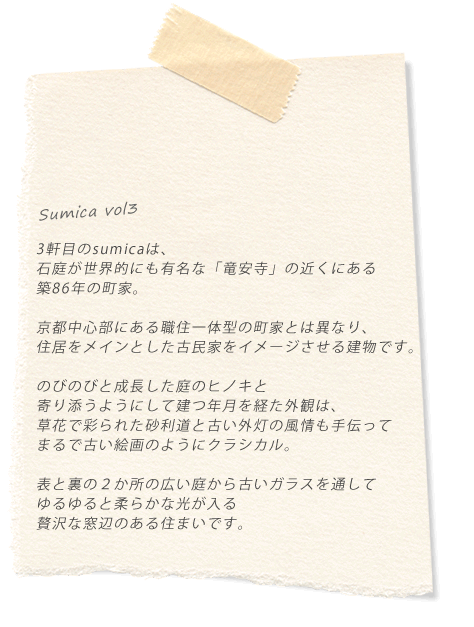 Sumica vol3
3軒目のsumicaは、
石庭が世界的にも有名な「竜安寺」の近くにある
築86年の町家。
京都中心部にある職住一体型の町家とは異なり、
住居をメインとした古民家をイメージさせる建物です。
のびのびと成長した庭のヒノキと
寄り添うようにして建つ年月を経た外観は、
草花で彩られた砂利道と古い外灯の風情も手伝って
まるで古い絵画のようにクラシカル。
表と裏の２か所の広い庭から古いガラスを通して
ゆるゆると柔らかな光が入る
贅沢な窓辺のある住まいです。